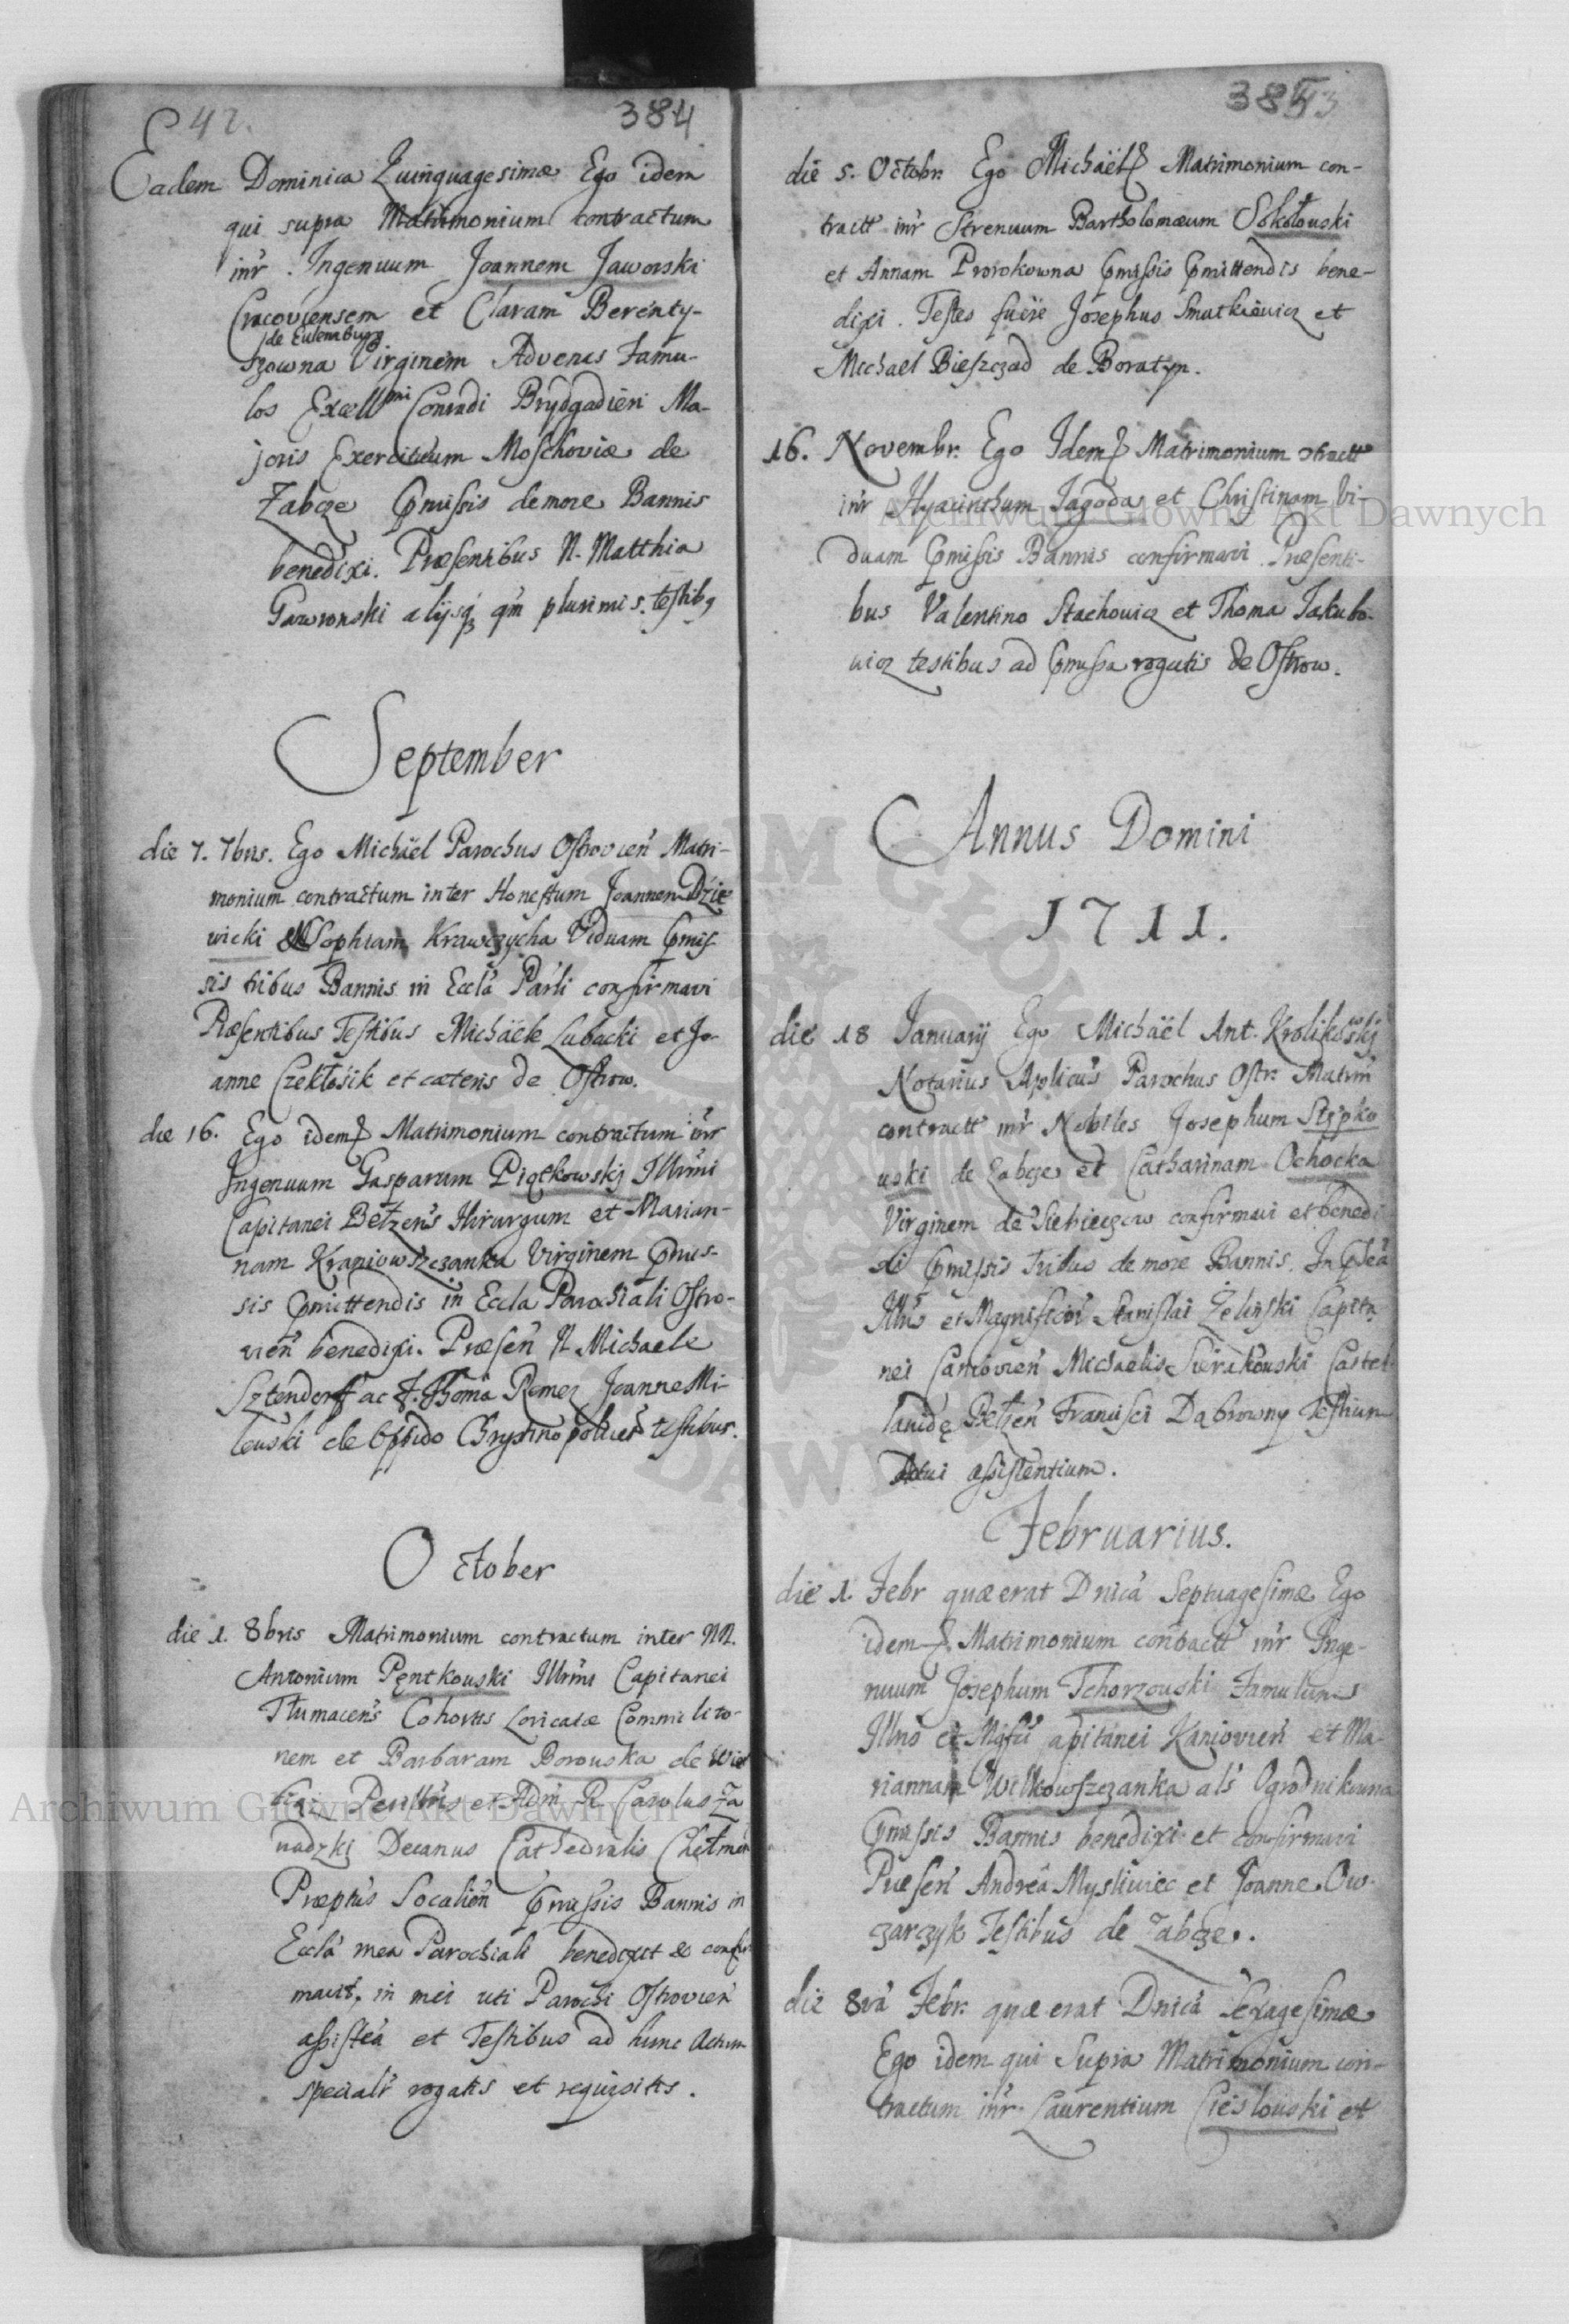 42.
384
Eadem Dominica Quinquagesimæ Ego idem
qui supra Matrimonium contractum
inr̃ Ingenuum Joannem Jaworski
Cracoviensem et Claram Berenty-
de Eulemburg
szowna Virginem Advenas Famu-
los Excell^mi Conradi Brydgadieri Ma-
joris Exercituum Moschoviæ de
Zabcze p̃missis de more Bannis
benedixi. Præsentibus N. Matthia
Gawronski alijsq̃ qm̃ plurimis testib9
September
die 7. 7bris. Ego Michäel Parochus Ostrovien̄ Matri-
monium contractum inter Honestum Joannem Dzie
wicki Sophiam Krawczycha Viduam p̃mis
sis tribus Bannis in Eccla̅ Par̃li confirmavi
Præsentibus Testibus Michäele Lubacki et Jo-
anne Czekłosik et cæteris de Ostrow.
die 16. Ego idem Matrimonium contractum inr̃
Ingenuum Gasparum Piątkowskj Illmi
Capitanei Betzen̄s Hirurgum et Marian-
nam Kraniowszczanka Virginem p̃mis-
sis p̃mittendis in Eccla Parochiali Ostro-
vien̄ benedixi. Præsen̄ N. Michaele
Sztendorff ac F. Thoma Remez Joanne Mi-
lewski de Oppido Chrystinopolien̄ testibus.
October
die 1. 8bris Matrimonium contractum inter NN.
Antonium Pęntkouski Illmi Capitanei
Tłumacen̄s Cohortis Loricatæ Commilito-
nem et Barbaram Borouska de
et Adm̃ R. Carolus Za
wadzkj Decanus Cathedralis Chełmen̄
Præptũs Socalien̄ p̃missis Bannis in
Eccla̅ mea Parochiali benedixit & confir
mavit, in mei uti Parochi Ostrovien̄
assisten̄a et Testibus ad hunc Actum
specialr̃ rogatis et requisitis.
385
43
die 5. Octobr. Ego Michäel Matrimonium con-
tractt inr̃ Strenuum Bartholomæum Sokołouski
et Annam Prorokowna p̃missis p̃mittendis bene-
dixi. Testes fuere Josephus Smutkiewicz et
Michael Bieszczad de Boratyn.
16. Novembr. Ego Idem Matrimonium ctractt
inr̃ Hyacinthum Jagoda et Christinam Vi-
duam p̃missis Bannis confirmavi. Præsenti-
bus Valentino Stachowicz et Thoma Jakubo-
wicz testibus ad p̃missa rogatis de Ostrow.
Annus Domini
1711.
die 18 Januarij Ego Michäel Ant. Krolikowskj
Notarius Aplicus Parochus Ostr. Matrim̃
contractt inr̃ Nobiles Josephum Stypko
uski de Zabcze et Catharinam Ochocka
Virginem de Siebieczow confirmavi et benedi
xi p̃missis tribus de more Bannis. In
Illris et Magnificor̃ Stanislai Żeleński Capita
nei Caniovien̄ Michaelis Sierakouski Castel
lanidę Bełzen̄ Francisci Dąbrowny Testium
Actui assistentium.
Februarius.
die 1. Febr quæ erat Dnica̅ Septuagesimæ Ego
idem Matrimonium contractt inr̃ Inge-
nuum Josephum Tchorzouski Famulum
Illris et Mgfci apitanei Kaniovien̄ et Ma-
riannam Wilkowszczanka als Ogrodnikowna
p̃missis Bannis benedixi et confirmavi
Præsen̄ Andrea Mysliwiec et Joanne Ow-
czarczyk Testibus de Zabcze.
die 8va Febr. quæ erat Dnica̅ Sexagesimæ
Ego idem qui Supra Matrimonium con-
tractum inr̃ Laurentium Cieslouski et
Archiwum Główne Akt Dawnych
Archiwum Główne Akt Dawnych